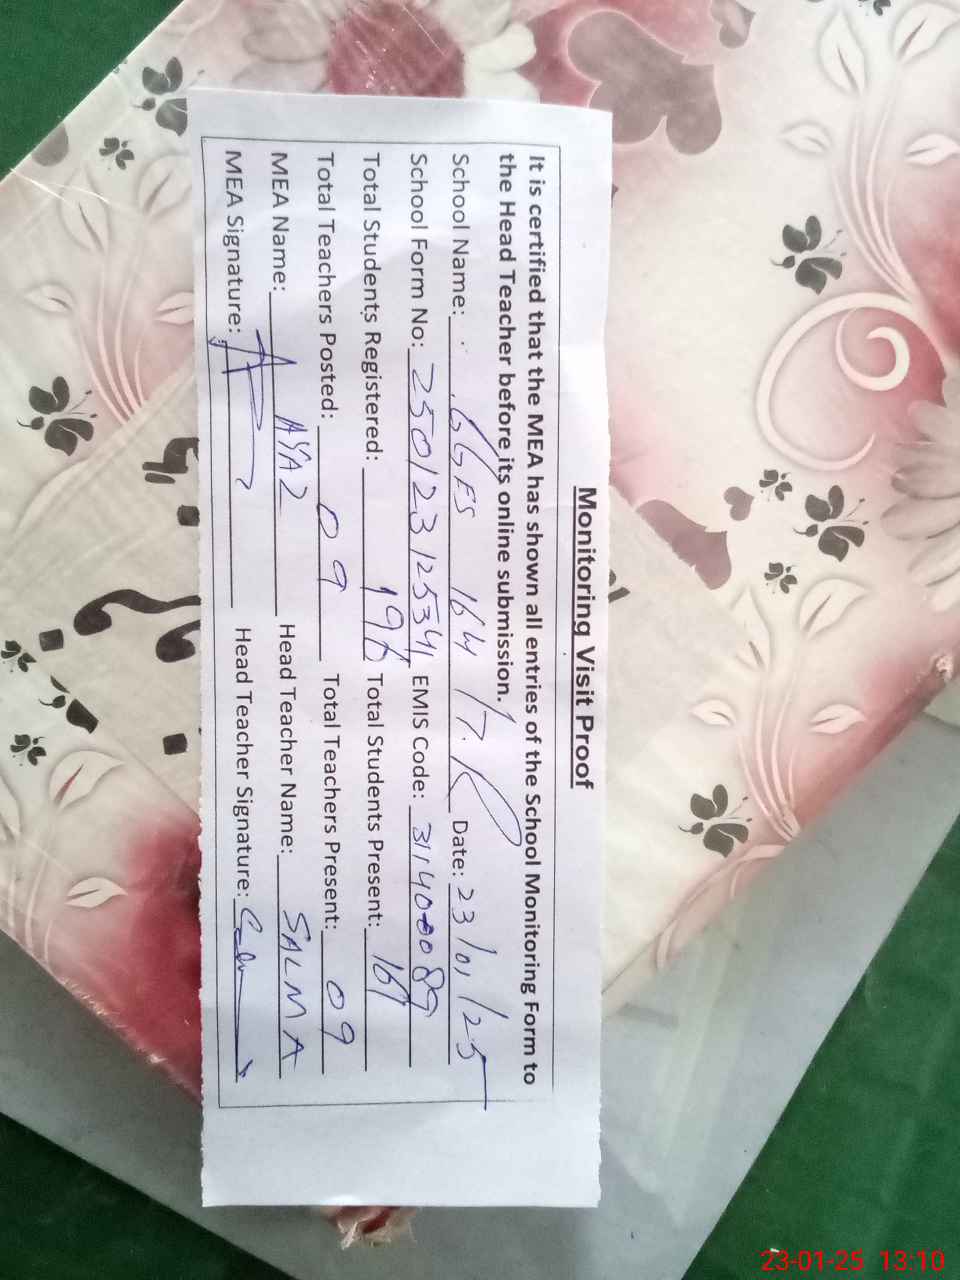 Monitoring Visit Proof
It is certified that the MEA has shown all entries of the School Monitoring Form to
the Head Teacher before its online submission.
School Name: GGES 164 17.R Date: 23/01/25
School Form No: 25012312534 EMIS Code: 31140089
Total Students Registered: Total Students Present: 161
Total Teachers Posted: 09 Total Teachers Present: 09
MEA Name: AYAZ Head Teacher Name: SALMA
MEA Signature: Head Teacher Signature:
23-01-25 13:10